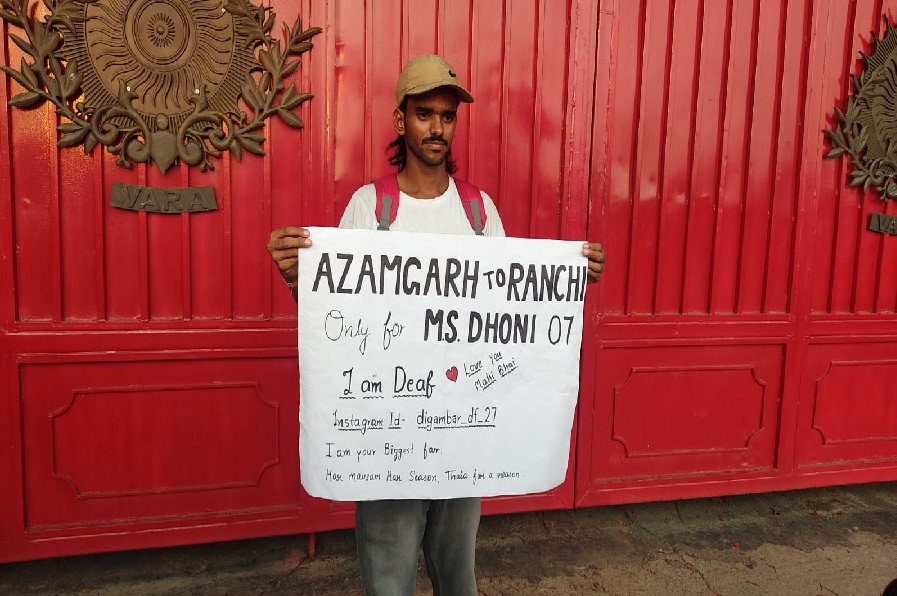 VARA
AZAMGARH TO RANCHI
Only for M.S. DHONI 07
I am Deaf ❤ Love You
Mahi Bhai
Instagram Id- digambar_df_27
I am your Biggest fan.
Har mausam Har Season, Thala for a reason
VA